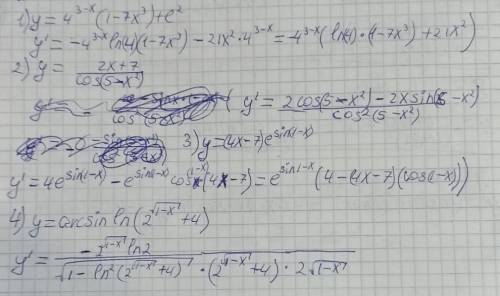 1) y = 4^(3-x) (1-7x³) + e²
y' = -4^(3-x) ln(4)(1-7x³) - 21x² · 4^(3-x) = -4^(3-x) (ln(4) · (1-7x³) + 21x²)
2) y = (2x+7)/(cos(5-x²))
y' = (2cos(5-x²) - 2x sin(5-x²))/(cos²(5-x²))
3) y = (4x-7)e^(sin(1-x))
y' = 4e^(sin(1-x)) - e^(sin(1-x)) cos(1-x) (4x-7) = e^(sin 1-x) (4-(4x-7)(cos(1-x)))
4) y = arcsin ln(2^(√(1-x)) + 4)
y' = (-2^(√(1-x)) ln2)/(√(1-ln²(2^(√(1-x)) + 4)) · (2^(√(1-x)) + 4) · 2√(1-x))